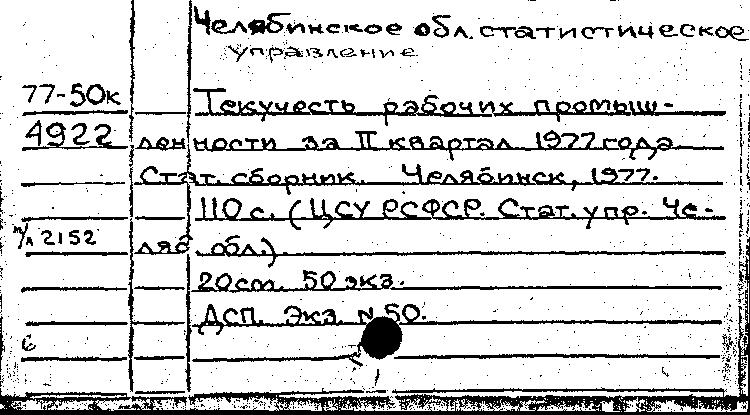 Челябинское обл. статистическое
управление
77-50к
Текучесть рабочих промыш-
4922
ленности за II квартал 1977 года
Стат. сборник. Челябинск, 1977.
110 с. (ЦСУ РСФСР. Стат. упр. Че-
п/л 2152
ляб. обл.)
20 см. 50 экз.
Дсп. Экз. N 50.
6